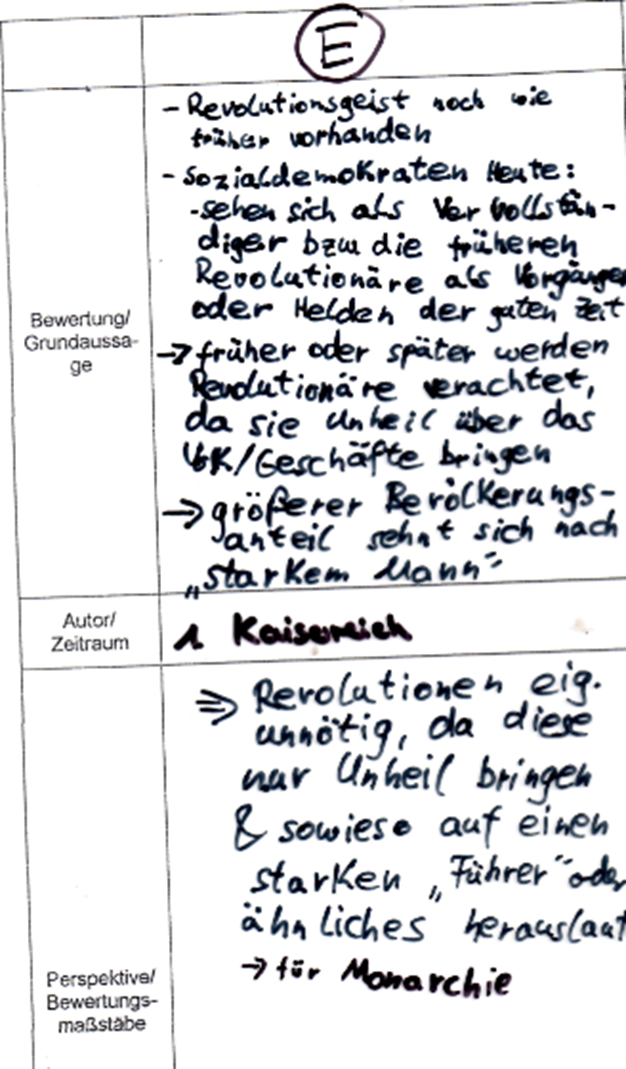 E
- Revolutionsgeist noch wie
früher vorhanden
- Sozialdemokraten Heute:
- sehen sich als Vervollstän-
diger bzw die früheren
Revolutionäre als Vorgänger
oder Helden der guten Zeit
Bewertung/
Grundaussa-
ge
→ früher oder später werden
Revolutionäre verachtet,
da sie Unheil über das
Volk/Geschäfte bringen
→ größerer Bevölkerungs-
anteil sehnt sich nach
„starkem Mann"
Autor/
Zeitraum
1. Kaiserreich
⇒ Revolutionen eig.
unnötig, da diese
nur Unheil bringen
& sowieso auf einen
starken „Führer" oder
ähnliches herauslauf
→ für Monarchie
Perspektive/
Bewertungs-
maßstäbe